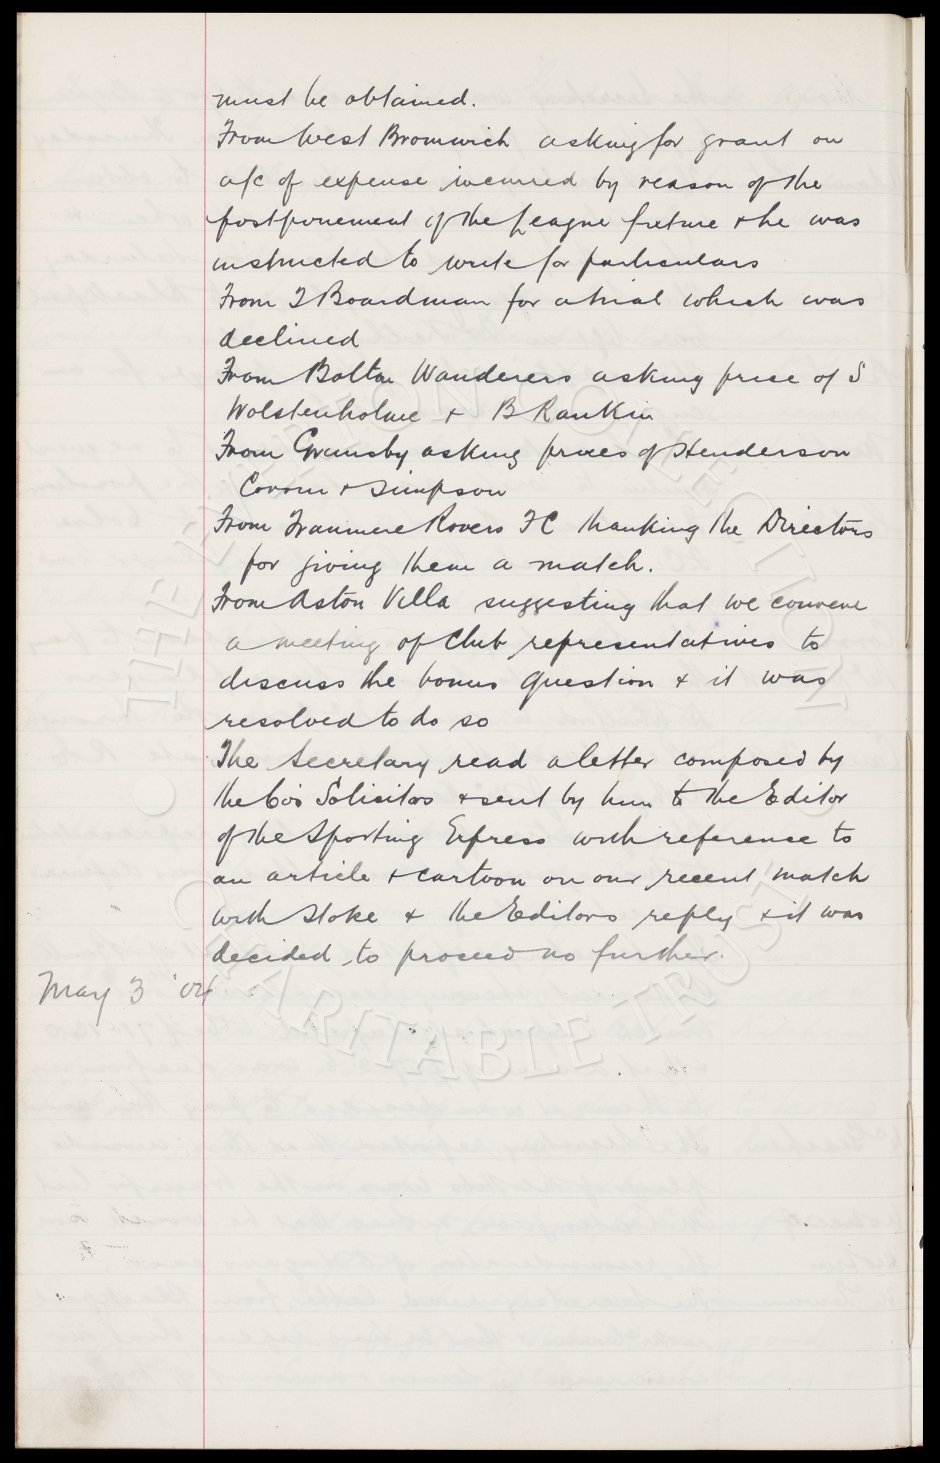 must be obtained.
From West Bromwich asking for grant on
a/c of expense incurred by reason of the
postponement of the League fixture & he was
instructed to write for particulars
From T Boardman for a trial which was
declined
From Bolton Wanderers asking price of S
Wolstenholme & B Rankin
From Grimsby asking prices of Henderson
Corrin & Simpson
From Tranmere Rovers FC thanking the Directors
for giving them a match.
From Aston Villa suggesting that we convene
a meeting of Club representatives to
discuss the bonus question & it was
resolved to do so
The Secretary read a letter composed by
the Co's Solicitors & sent by him to the Editor
of the Sporting Express with reference to
an article & cartoon on our recent match
with Stoke & the Editors reply & it was
decided to proceed no further.
May 3 '04
THE EVERTON COLLECTION
CHARITABLE TRUST